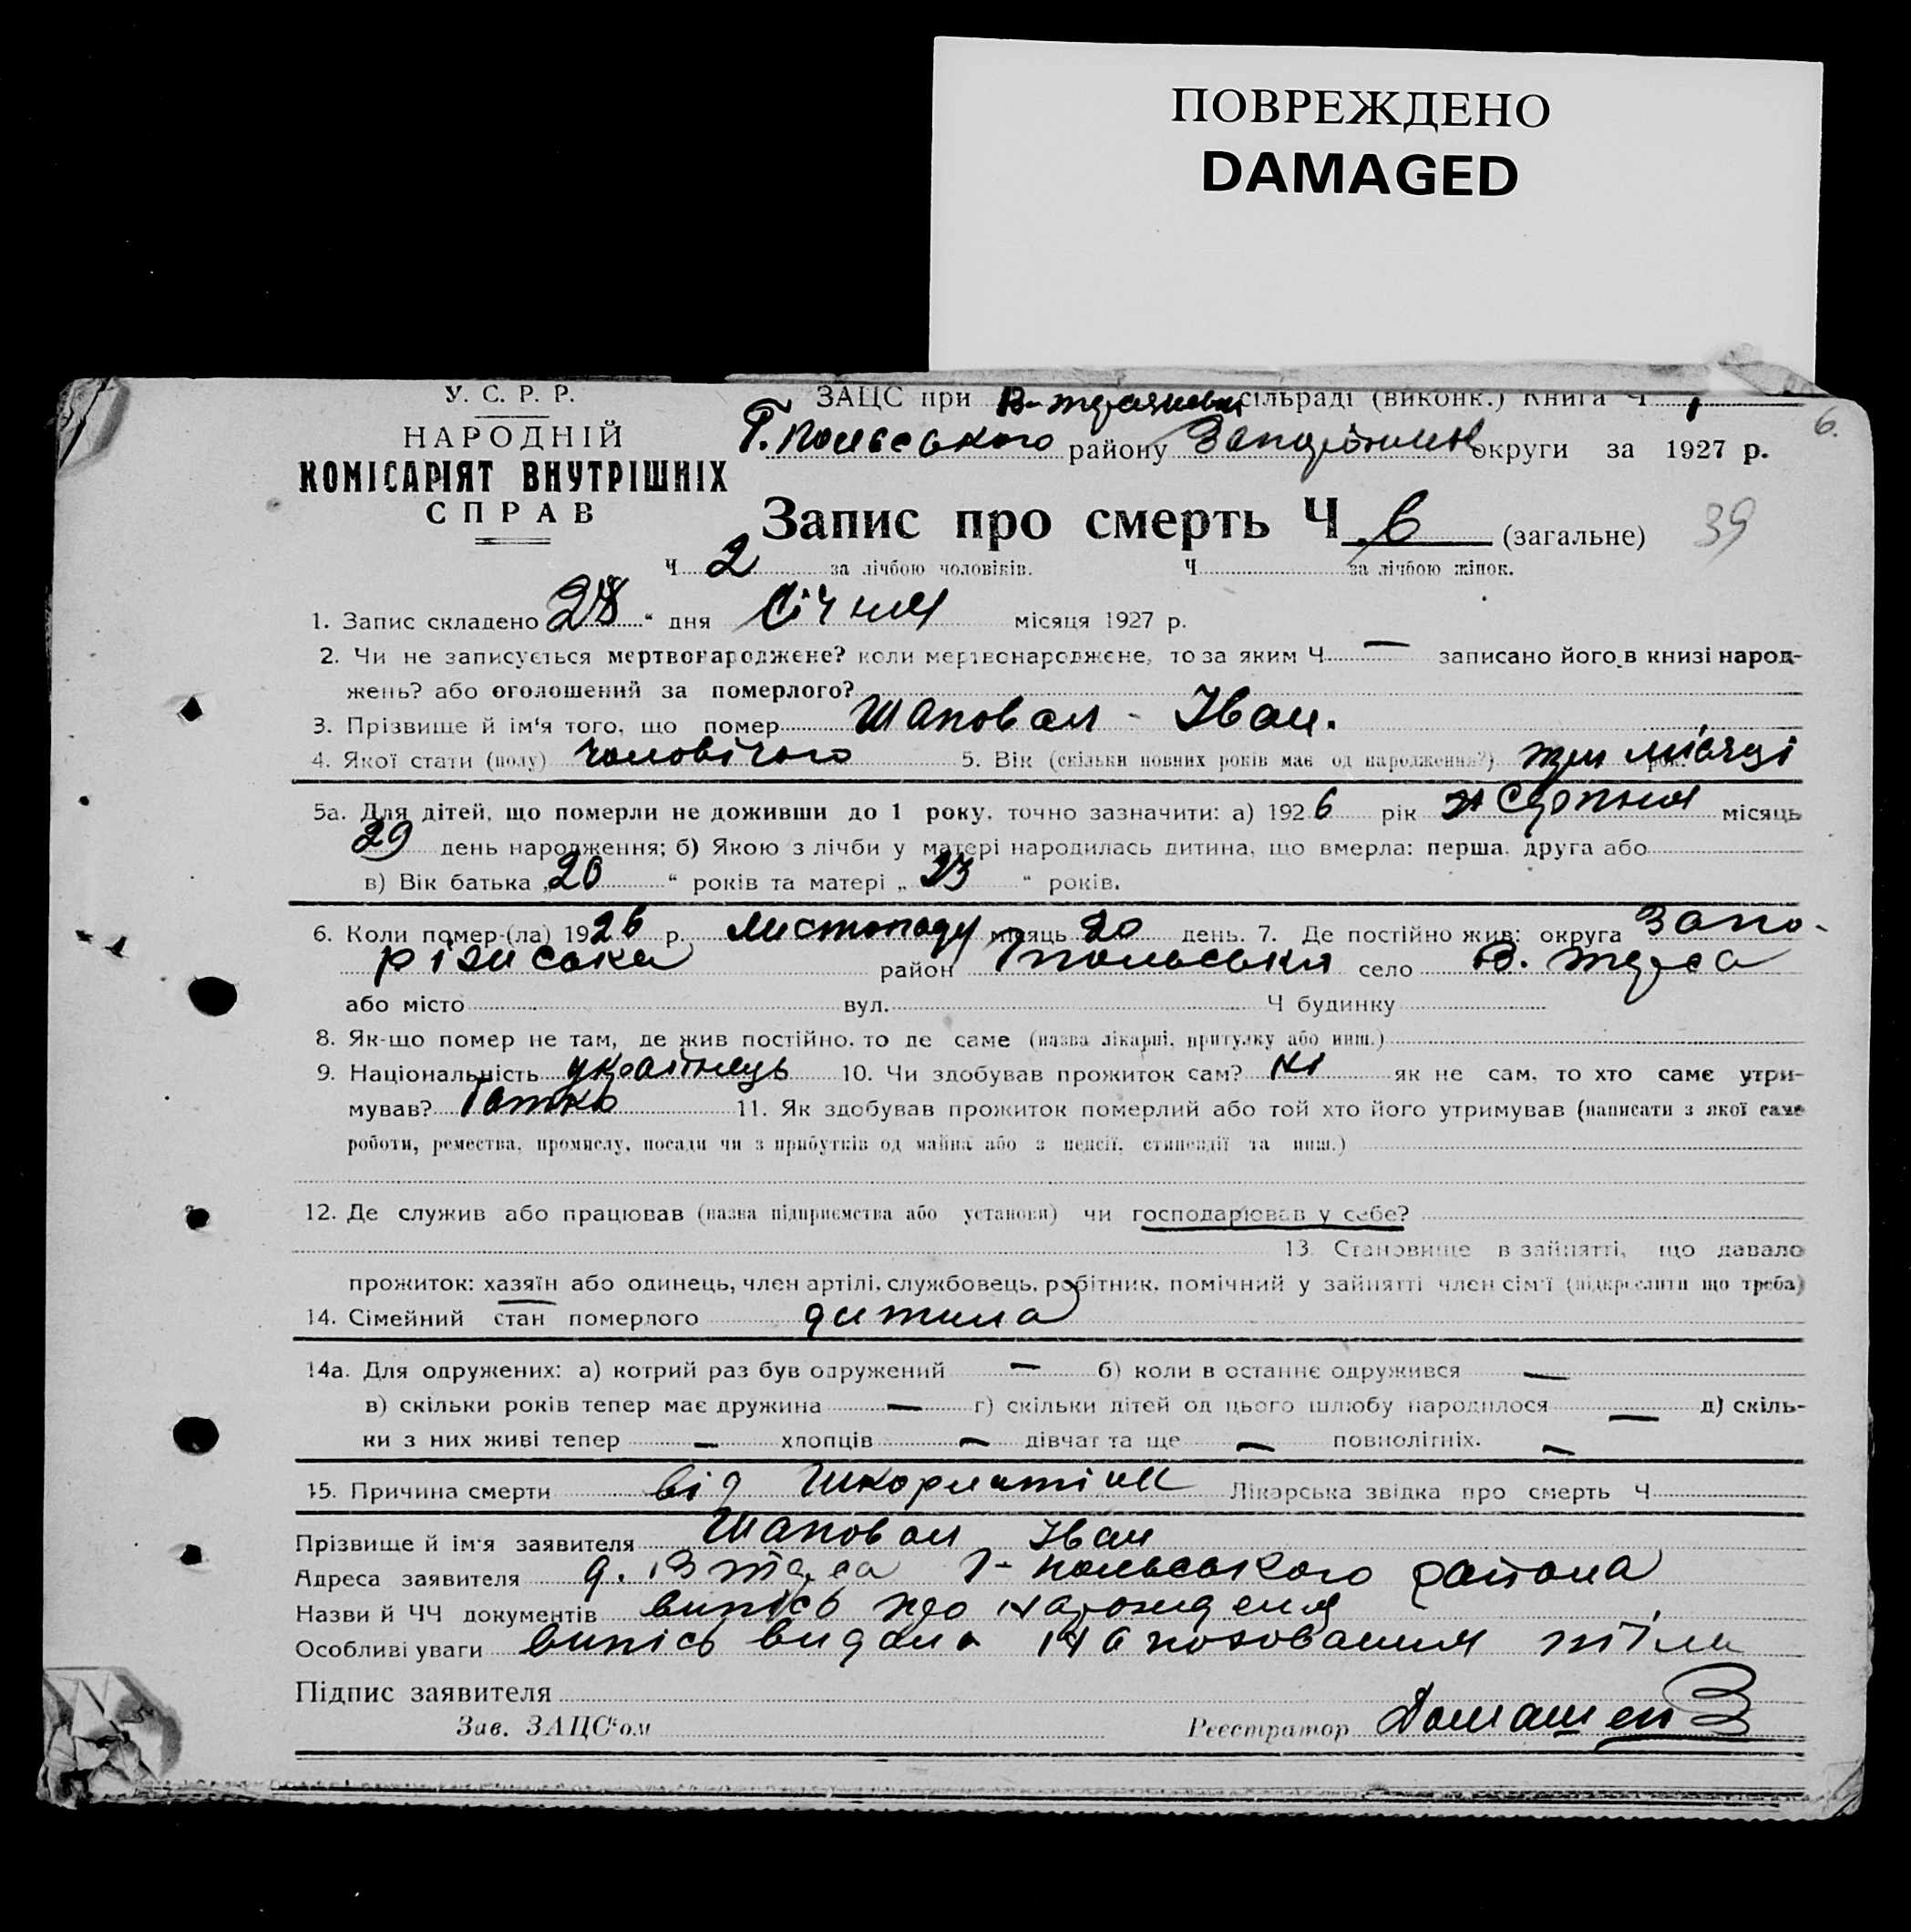 ПОВРЕЖДЕНО
DAMAGED
6.
У. С. Р. Р.
НАРОДНІЙ
КОМІСАРІЯТ ВНУТРІШНІХ
СПРАВ
ЗАЦС при сільраді (виконк.) Книга Ч 1
Г. Польського району округи за 1927 р.
Запис про смерть Ч 6 (загальне) 39
Ч 2 за лічбою чоловіків. Ч за лічбою жінок.
1. Запис складено 28 “ дня Січня місяця 1927 р.
2. Чи не записується мертвонароджене? коли мертвонароджене, то за яким Ч — записано його в книзі народ-
жень? або оголошений за померлого?
3. Прізвище й ім‘я того, що помер Шаповал - Іван.
4. Якої стати (полу) чоловічого 5. Вік (скільки повних років має од народження?) три місяці рок.
5а. Для дітей, що померли не доживши до 1 року, точно зазначити: а) 1926 рік Серпня місяць
29 день народження; б) Якою з лічби у матері народилась дитина, що вмерла: перша, друга або
в) Вік батька „20“ років та матері „23“ років.
6. Коли помер-(ла) 1926 р. листопаду місяць 20 день. 7. Де постійно жив: округа Запо-
різська район Гпольськи село В. терса
або місто вул. Ч будинку
8. Як-що помер не там, де жив постійно, то де саме (назва лікарні, притулку або инш.)
9. Національність українець 10. Чи здобував прожиток сам? ні як не сам, то хто саме утри-
мував? Батько 11. Як здобував прожиток померлий або той хто його утримував (написати з якої саме
роботи, ремества, промислу, посади чи з прибутків од майна або з пенсії, стипендії та инш.)
12. Де служив або працював (назва підприємства або установи) чи господарював у себе?
13. Становище в зайнятті, що давало
прожиток: хазяїн або одинець, член артілі, службовець, робітник, помічний у зайнятті член сім‘ї (підкреслити що треба)
14. Сімейний стан померлого дитина
14а. Для одружених: а) котрий раз був одружений — б) коли в останнє одружився —
в) скільки років тепер має дружина — г) скільки дітей од цього шлюбу народилося — д) скіль-
ки з них живі тепер — хлопців — дівчат та ще — повнолітніх. —
15. Причина смерти від Шкорлатіни Лікарська звідка про смерть Ч
Прізвище й ім‘я заявителя Шаповал Іван
Адреса заявителя д. В терса Г-польського района
Назви й ЧЧ документів випісь про народження
Особливі уваги випісь видана на поховання тіла
Підпис заявителя
Зав. ЗАЦС‘ом Реєстратор